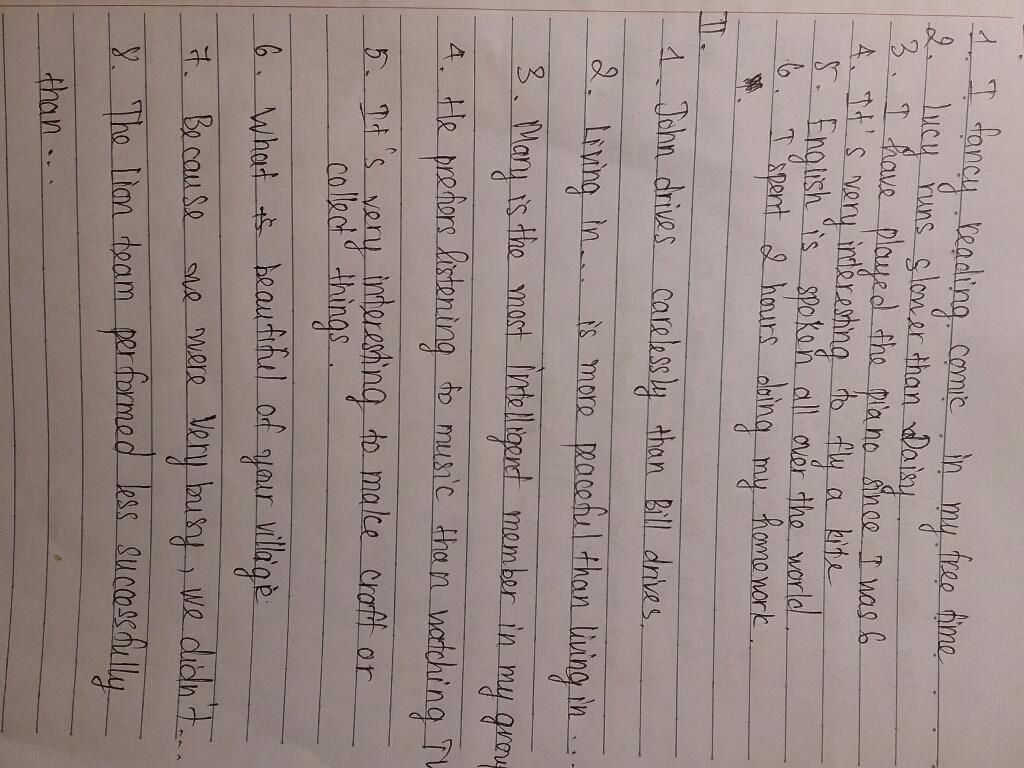 1. I fancy reading comic in my free time
2. Lucy runs slower than Daisy
3. I have played the piano since I was 6
4. It's very interesting to fly a kite
5. English is spoken all over the world
6. I spent 2 hours doing my homework.
II.
1. John drives carelessly than Bill drives.
2. Living in... is more peaceful than living in...
3. Mary is the most intelligent member in my group
4. He prefers listening to music than watching TV
5. It's very interesting to make craft or
collect things.
6. What is beautiful of your village
7. Because we were very busy, we didn't...
8. The lion team performed less successfully
than...